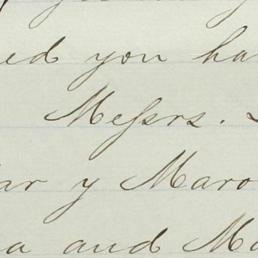 ed you ha
Messrs.
ar y Maro
a and Ma